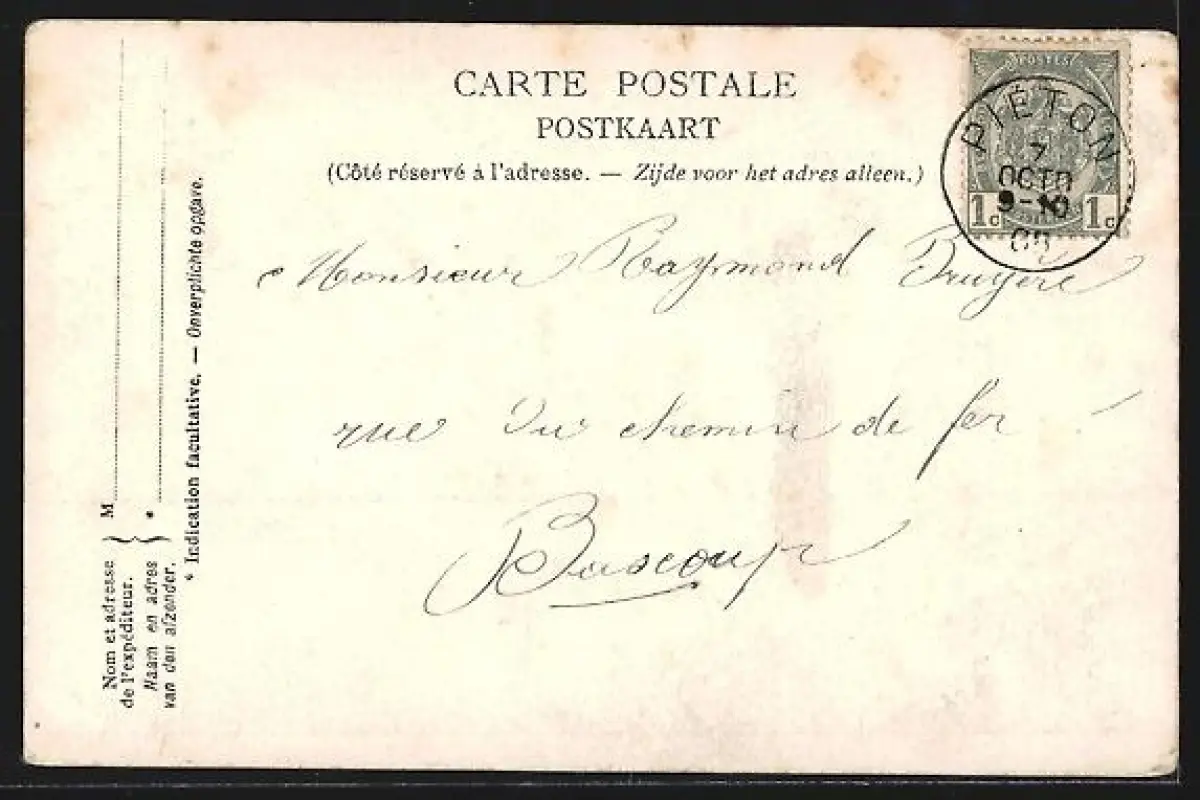 CARTE POSTALE
POSTKAART
(Côté réservé à l'adresse. — Zijde voor het adres alleen.)
POSTES
PIÉTON
7
OCTO
9-10
1c 1c
Monsieur Raymond Bruyère
rue du chemin de fer
Bascoup
Nom et adresse
de l'expéditeur.
Naam en adres
van den afzender.
M
*
* Indication facultative. — Onverplichte opgave.